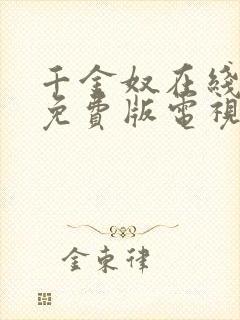 千金奴在綫
免費版電視
金東律